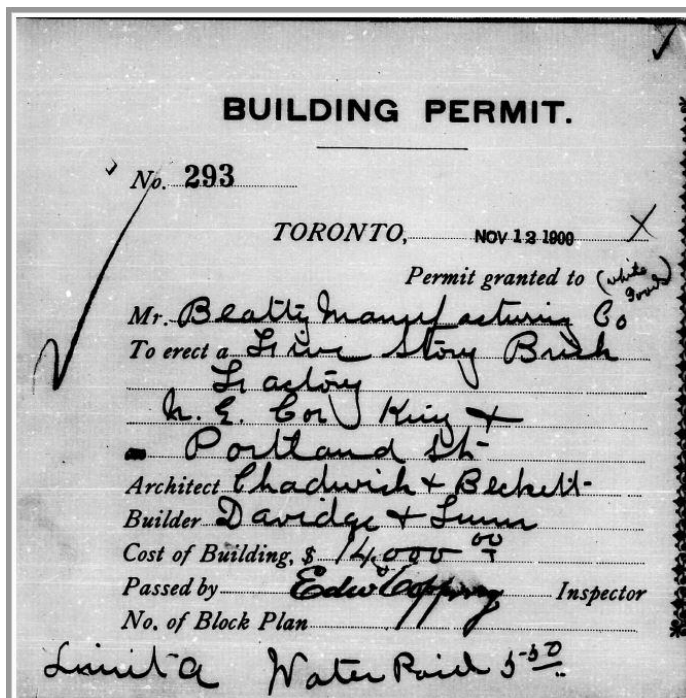 BUILDING PERMIT.
No. 293
TORONTO, NOV 12 1900 X
Permit granted to (white
goods)
Mr. Beatty Manufacturing Co
To erect a Five Story Brick
Factory
N. E. Cor King +
Portland St
Architect Chadwick + Beckett
Builder Davidge + Lunn
Cost of Building, $ 14,000 00
Passed by Edw Copping Inspector
No. of Block Plan
Limit A Water Paid 5-50